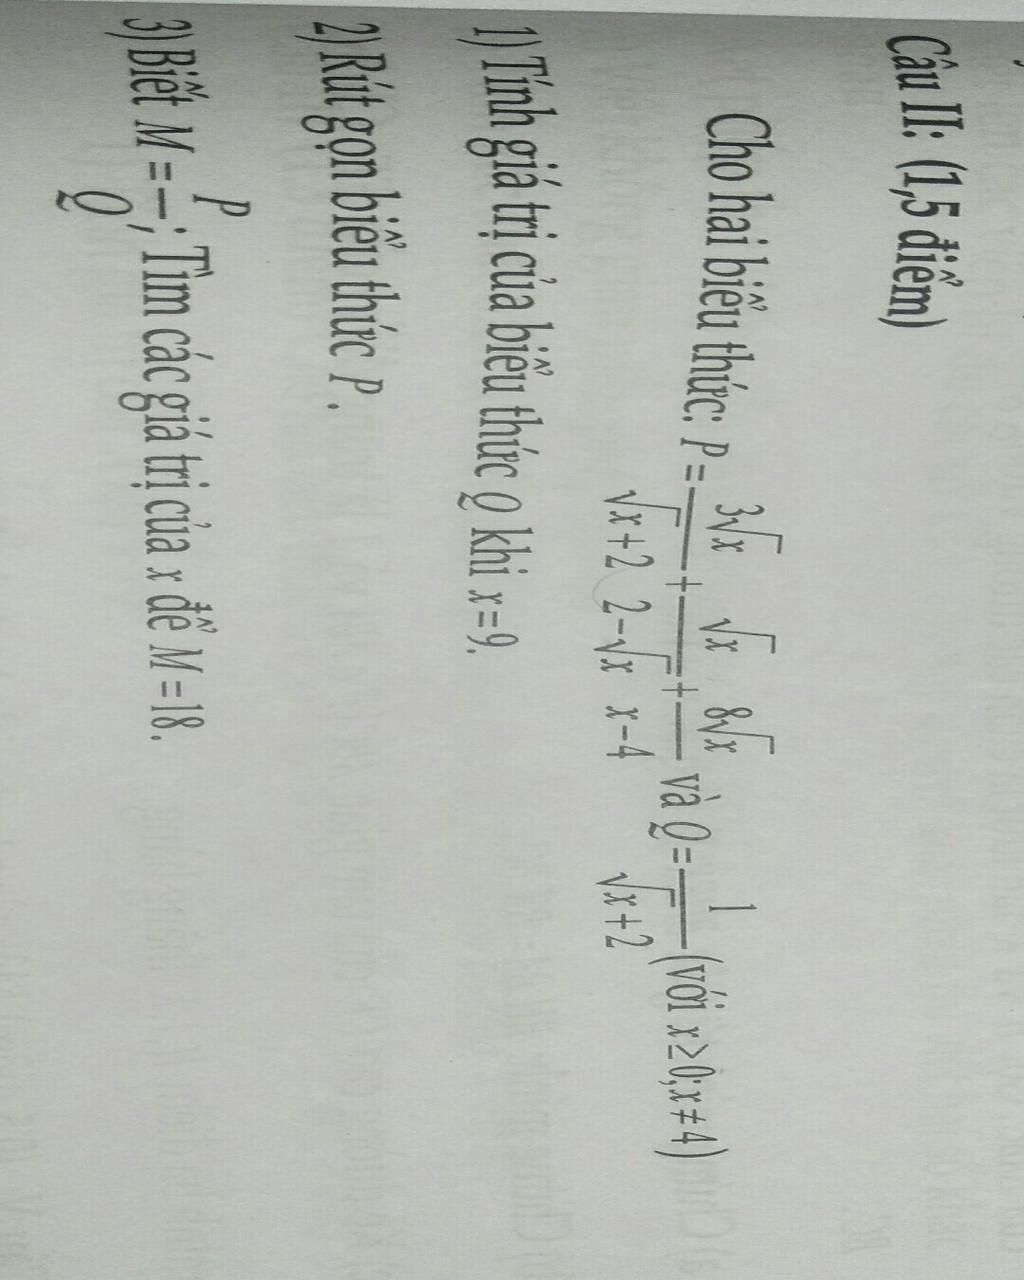 Câu II: (1,5 điểm)
Cho hai biểu thức: P = 3√x/(√x+2) + √x/(2−√x) + 8√x/(x−4) và Q = 1/(√x+2) (với x ≥ 0; x ≠ 4)
1) Tính giá trị của biểu thức Q khi x = 9.
2) Rút gọn biểu thức P.
3) Biết M = P/Q; Tìm các giá trị của x để M = 18.